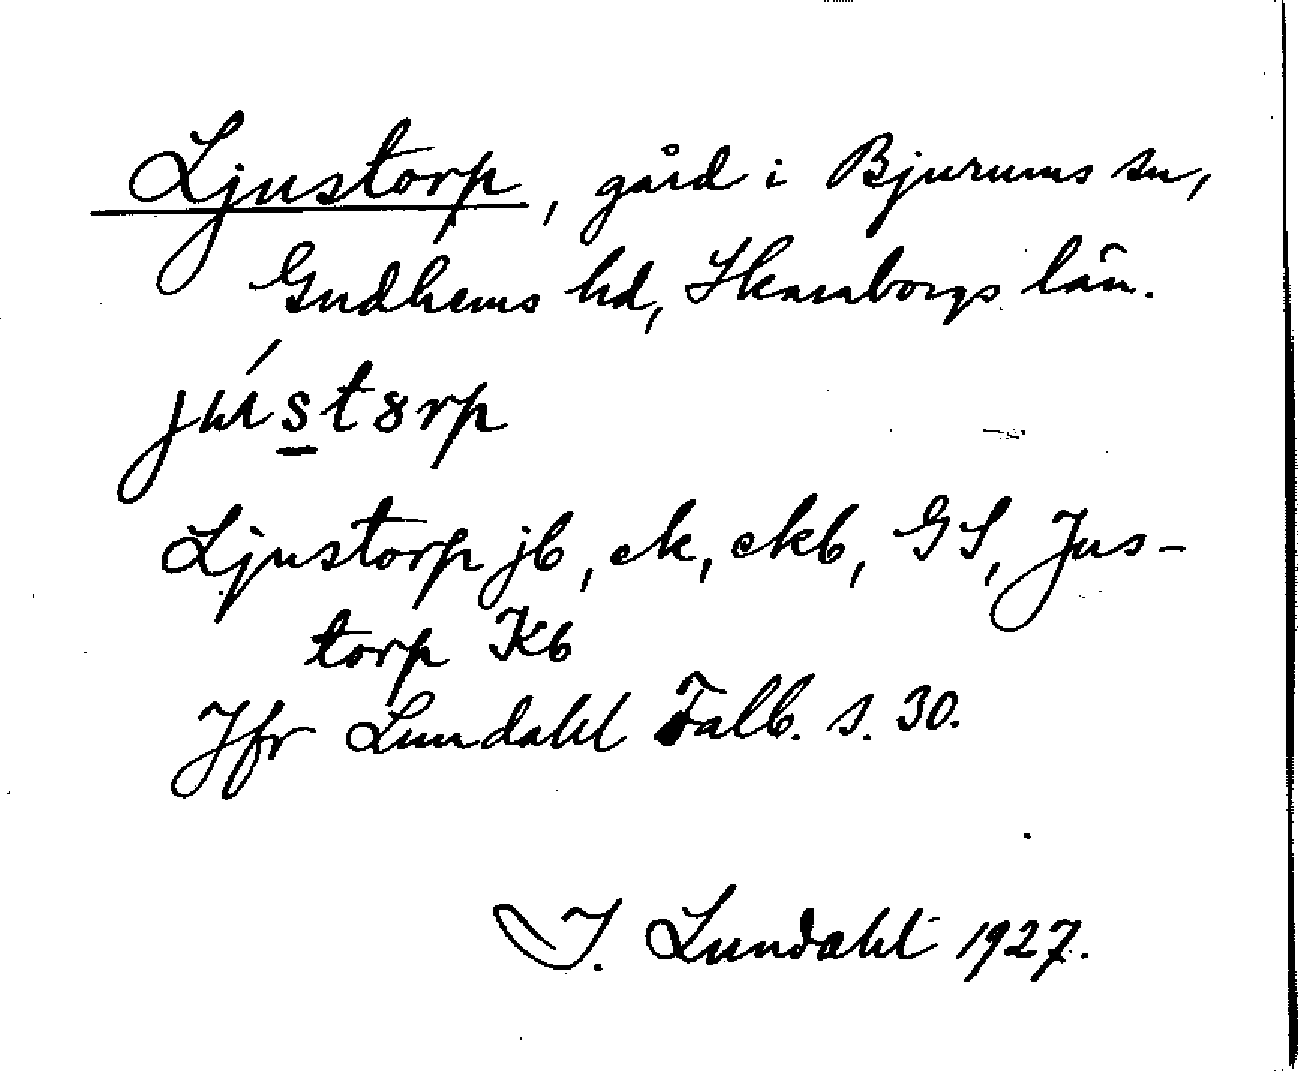 Ljustorp, gård i Bjurums sn,
Gudhems hd, Skaraborgs län.
jústȣrp
Ljustorp jb, ek, ekb, GS, Jus-
torp Kb
Jfr Lundahl Falb. s. 30.
I. Lundahl 1927.